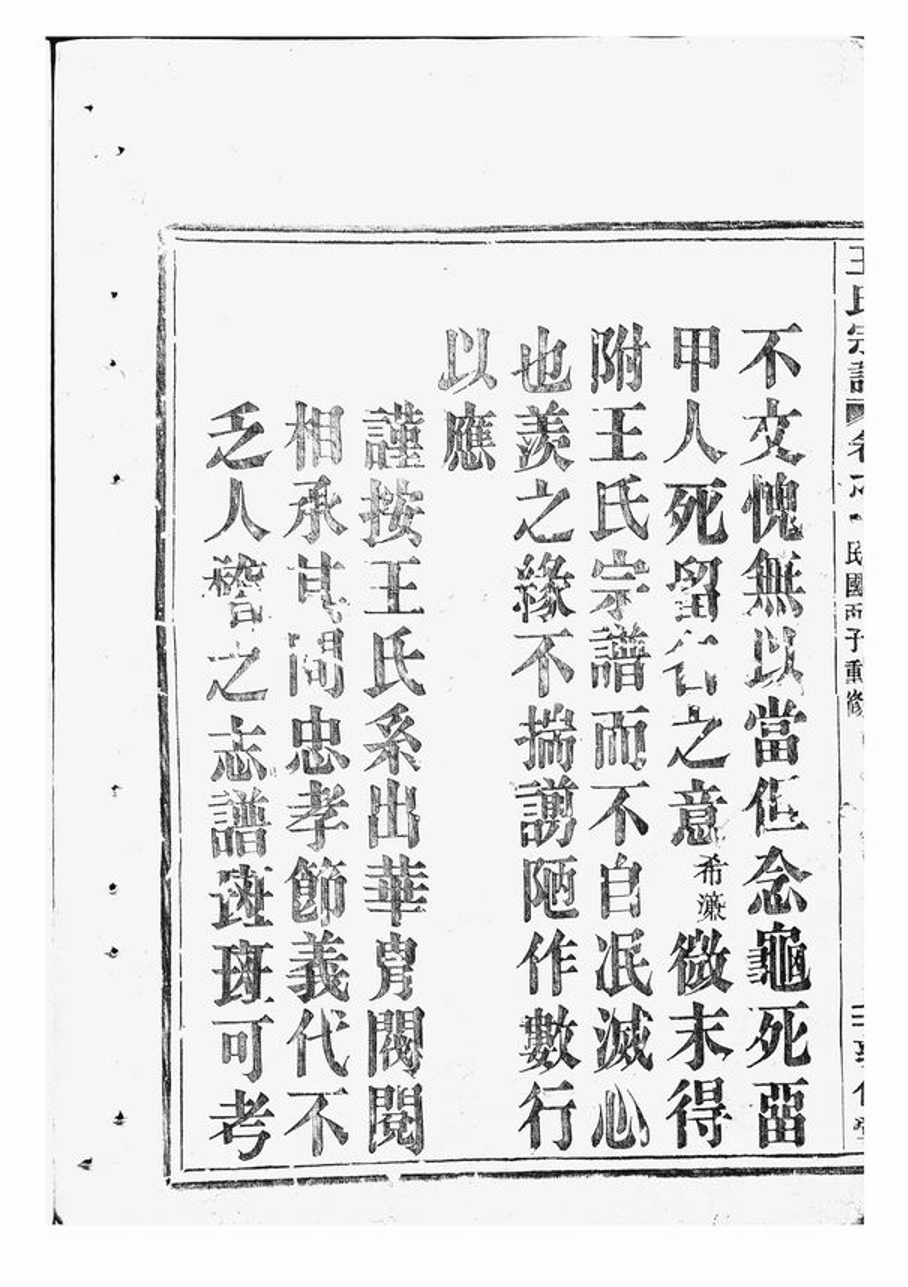 王氏宗譜 卷 民國丙子重修
不文愧無以當但念龜死畱
甲人死留名之意希濂微末得
附王氏宗譜而不自泯滅心
也羨之緣不揣謭陋作數行
以應
謹按王氏系出華胄閥閱
相承其間忠孝節義代不
乏人稽之志譜班班可考